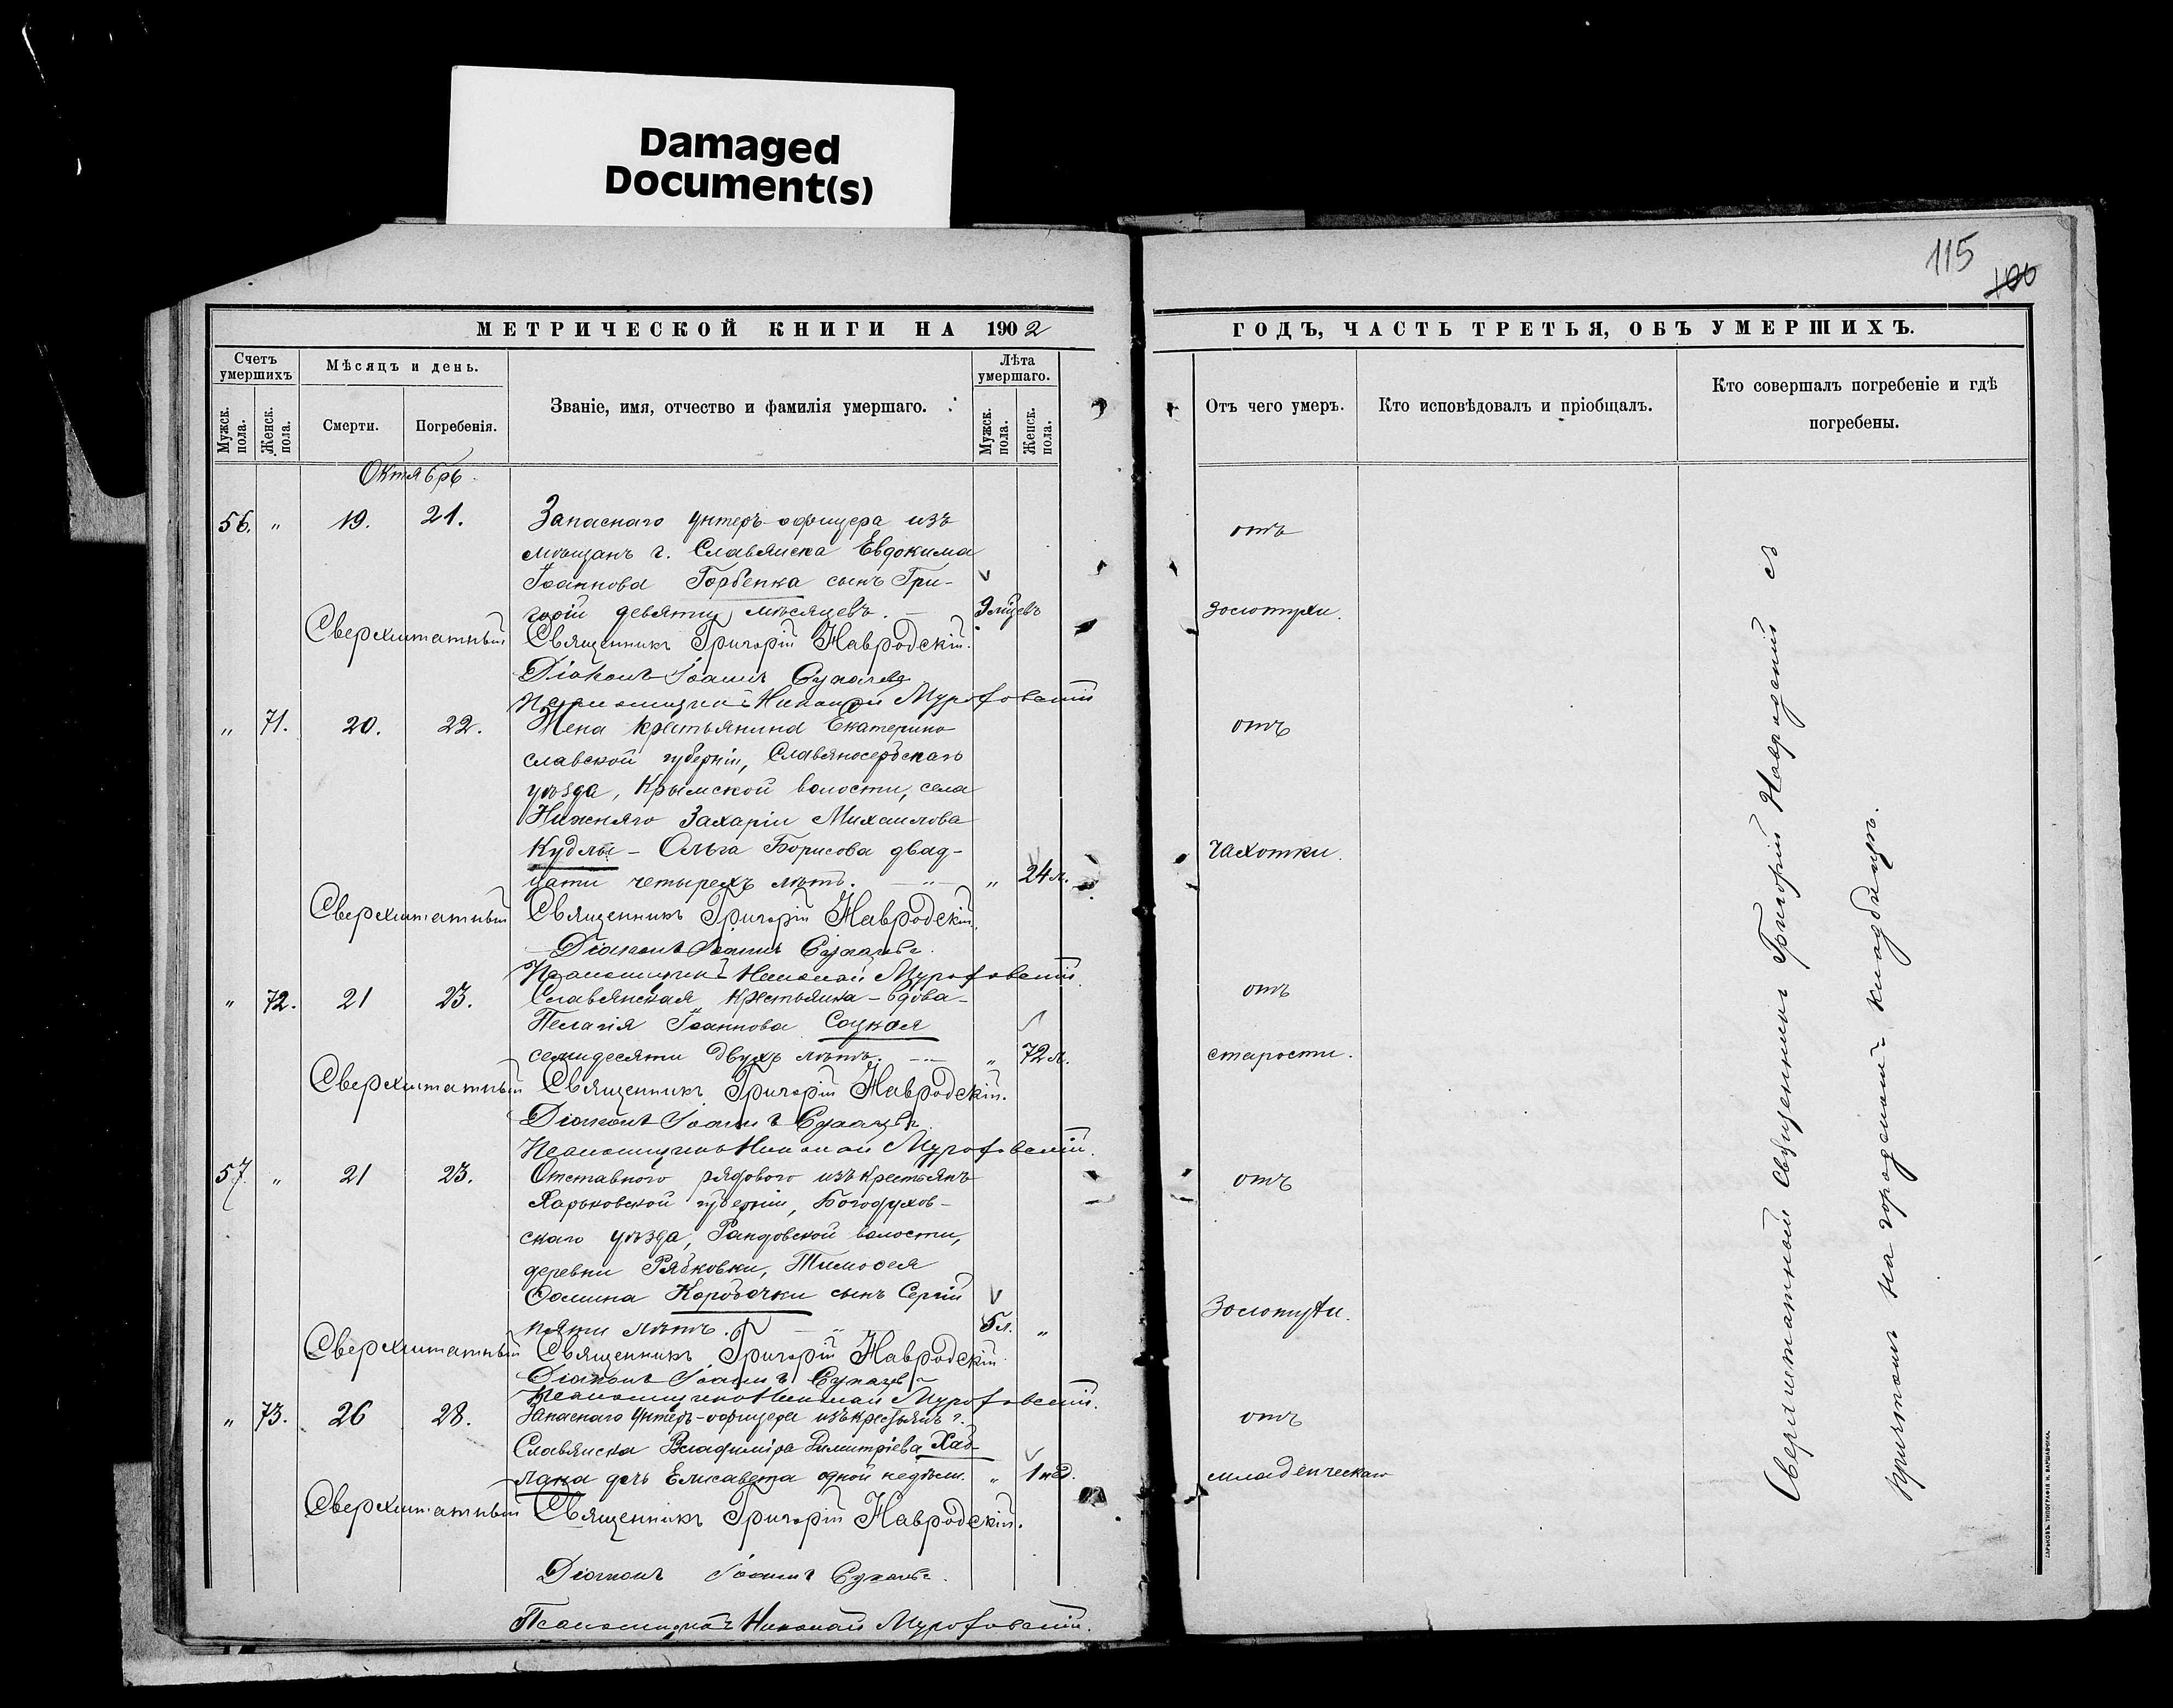 Damaged
Document(s)
115
100
МЕТРИЧЕСКОЙ КНИГИ НА 1902
Счетъ умершихъ
Мѣсяцъ и день.
Званіе, имя, отчество и фамилія умершаго.
Лѣта умершаго.
Мужск. пола.
Женск. пола.
Смерти.
Погребенія.
Мужск. пола.
Женск. пола.
Октябрь.
56. " 19. 21. Запаснаго унтеръ-офицера изъ
мѣщанъ г. Славянска Евдокима
Іоаннова Горбенка сынъ Гри-
горій девяти мѣсяцевъ. — 9 мцевъ
Сверхштатный Священникъ Григорій Навродскій.
Діаконъ Іоаннъ
Псаломщикъ Николай
" 71. 20. 22. Жена крестьянина Екатерино
славской губерніи, Славяносербскаго
уѣзда, Крымской волости, села
Нижняго Захаріи Михаилова
Кудлы – Ольга Борисова двад-
цати четырехъ лѣтъ. — " — " 24 л.
Сверхштатный Священникъ Григорій Навродскій.
Діаконъ Іоаннъ
Псаломщикъ Николай
" 72. 21 23. Славянская крестьянка – вдова –
Пелагія Іоаннова Соцкая
семидесяти двухъ лѣтъ. — " 72 л.
Сверхштатный Священникъ Григорій Навродскій.
Діаконъ Іоаннъ
Псаломщикъ Николай
57 " 21 23. Отставного рядового изъ крестьянъ
Харьковской губерніи, Богодухов-
скаго уѣзда, волости,
деревни Рябковки, Тимофея
Фомина Коробочки сынъ Сергій
пяти лѣтъ. — " 5 л. "
Сверхштатный Священникъ Григорій Навродскій
Діаконъ Іоаннъ
Псаломщикъ Николай
" 73. 26 28. Запаснаго унтеръ-офицера изъ крестьянъ г.
Славянска Владиміра Димитріева Хаб-
лака дочь Елисавета одной недѣли. " 1 нед.
Сверхштатный Священникъ Григорій Навродскій.
Діаконъ Іоаннъ
Псаломщикъ Николай
ГОДЪ, ЧАСТЬ ТРЕТЬЯ, ОБЪ УМЕРШИХЪ.
Отъ чего умеръ.
Кто исповѣдовалъ и пріобщалъ.
Кто совершалъ погребеніе и гдѣ
погребены.
отъ
золотухи.
отъ
чахотки.
отъ
старости.
отъ
Золотухи.
отъ
младенческаго
Сверхштатный Священникъ Григорій Навродскій съ
причтомъ на городскомъ кладбищѣ.
ХАРЬКОВЪ. ТИПОГРАФІЯ И. ВАРШАВЧИКА.